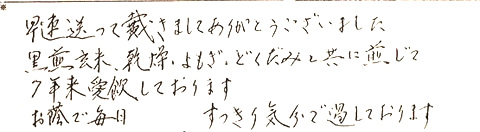 早速送って戴きましてありがとうございました
黒煎玄米、乾燥・よもぎ、どくだみと共に煎じて
7年来愛飲しております
お蔭で毎日 すっきり気分で過しております